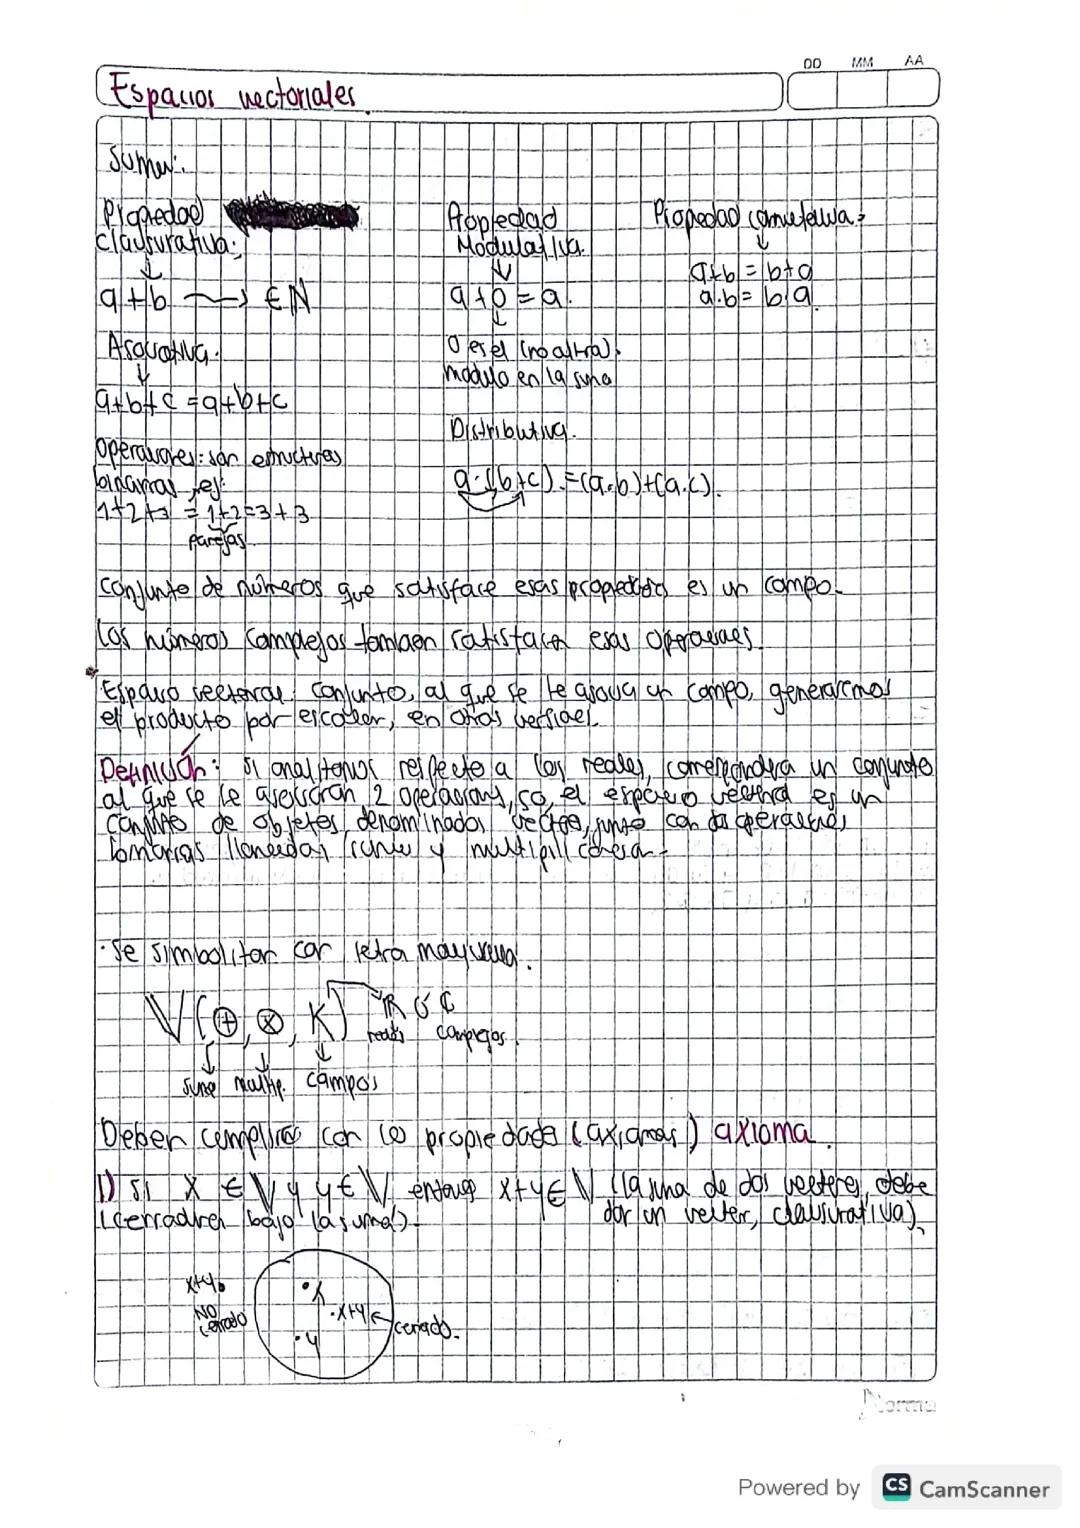 DD MM AA
Espacios vectoriales
Suma:
Propiedad
clausurativa:
a+b → ∈ ℕ
Asociativa.
a+b+c = a+b+c
Operaciones: son estructuras
binarias, ej:
1+2+3 = 1+2=3+3
parejas
Propiedad
Modulativa.
a+0 = a.
0 es el (no altera).
modulo en la suma
Distributiva.
a·(b+c) = (a·b)+(a.c).
Propiedad conmutativa:
a+b = b+a
a.b = b.a
Conjunto de números que satisface esas propiedades es un campo.
Los números complejos también satisfacen esas operaciones.
* Espacio vectorial conjunto, al que se le asocia un campo, generaremos
el producto por escalar, en otras
Definición: si analizamos respecto a los reales, corresponderá un conjunto
al que se le asociarán 2 operaciones, so, el espacio vectorial es un
conjunto de objetos, denominados junto con dos operaciones
binarias llamadas suma y
· Se simbolizan con letra mayuscula.
V(⊕, ⊗, K) ℝ ó ℂ
reales complejos.
suma multip. campos
Deben cumplirse con 10 propiedades (axiomas) axioma.
1) Si x ∈ V y y ∈ V, entonces x+y ∈ V (la suma de dos vectores, debe
dar un vector, clausurativa).
(cerradura bajo la suma).
x+y
NO
cerrado
·x
·x+y
cerrado.
·y
Norma
Powered by CS CamScanner